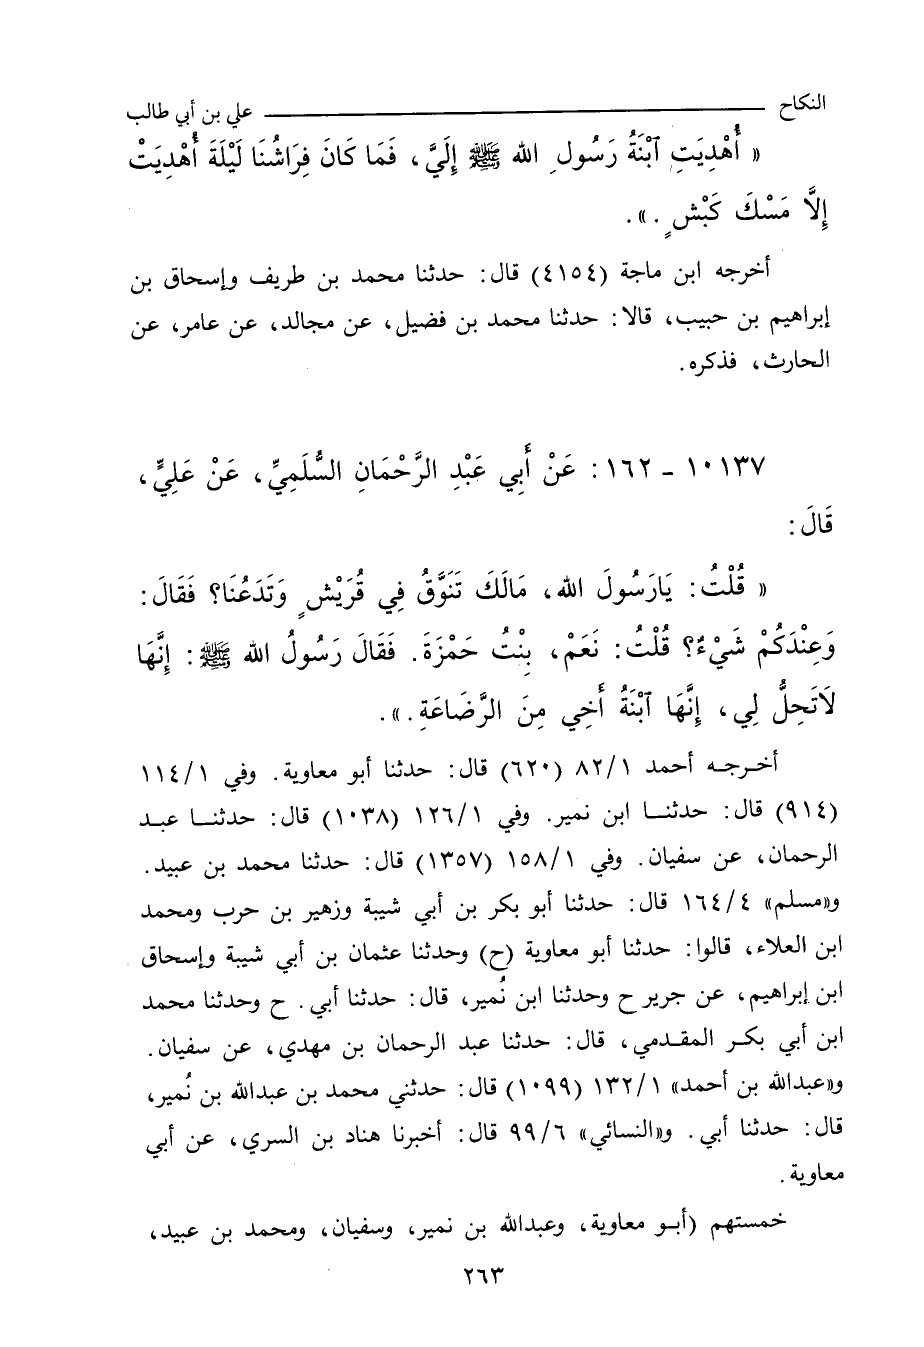 النكاح علي بن أبي طالب
« أُهْدِيَتِ ٱبْنَةُ رَسُولِ الله ﷺ إِلَيَّ، فَمَا كَانَ فِرَاشُنَا لَيْلَةَ أُهْدِيَتْ
إِلَّا مَسْكَ كَبْشٍ . ».
أخرجه ابن ماجة (٤١٥٤) قال: حدثنا محمد بن طريف وإسحاق بن
إبراهيم بن حبيب، قالا: حدثنا محمد بن فضيل، عن مجالد، عن عامر، عن
الحارث، فذكره.
١٠١٣٧ - ١٦٢: عَنْ أَبِي عَبْدِ الرَّحْمَانِ السُّلَمِيِّ، عَنْ عَلِيٍّ،
قَالَ:
« قُلْتُ: يَارَسُولَ الله، مَالَكَ تَنَوَّقُ فِي قُرَيْشٍ وَتَدَعُنَا؟ فَقَالَ:
وَعِنْدَكُمْ شَيْءٌ؟ قُلْتُ: نَعَمْ، بِنْتُ حَمْزَةَ. فَقَالَ رَسُولُ الله ﷺ: إِنَّهَا
لَاتَحِلُّ لِي، إِنَّهَا ٱبْنَةُ أَخِي مِنَ الرَّضَاعَةِ. ».
أخرجه أحمد ٨٢/١ (٦٢٠) قال: حدثنا أبو معاوية. وفي ١١٤/١
(٩١٤) قال: حدثنا ابن نمير. وفي ١٢٦/١ (١٠٣٨) قال: حدثنا عبد
الرحمان، عن سفيان. وفي ١٥٨/١ (١٣٥٧) قال: حدثنا محمد بن عبيد.
و«مسلم» ١٦٤/٤ قال: حدثنا أبو بكر بن أبي شيبة وزهير بن حرب ومحمد
ابن العلاء، قالوا: حدثنا أبو معاوية (ح) وحدثنا عثمان بن أبي شيبة وإسحاق
ابن إبراهيم، عن جرير ح وحدثنا ابن نُمير، قال: حدثنا أبي. ح وحدثنا محمد
ابن أبي بكر المقدمي، قال: حدثنا عبد الرحمان بن مهدي، عن سفيان.
و«عبدالله بن أحمد» ١٣٢/١ (١٠٩٩) قال: حدثني محمد بن عبدالله بن نُمير،
قال: حدثنا أبي. و«النسائي» ٩٩/٦ قال: أخبرنا هناد بن السري، عن أبي
معاوية.
خمستهم (أبو معاوية، وعبدالله بن نمير، وسفيان، ومحمد بن عبيد،
٢٦٣